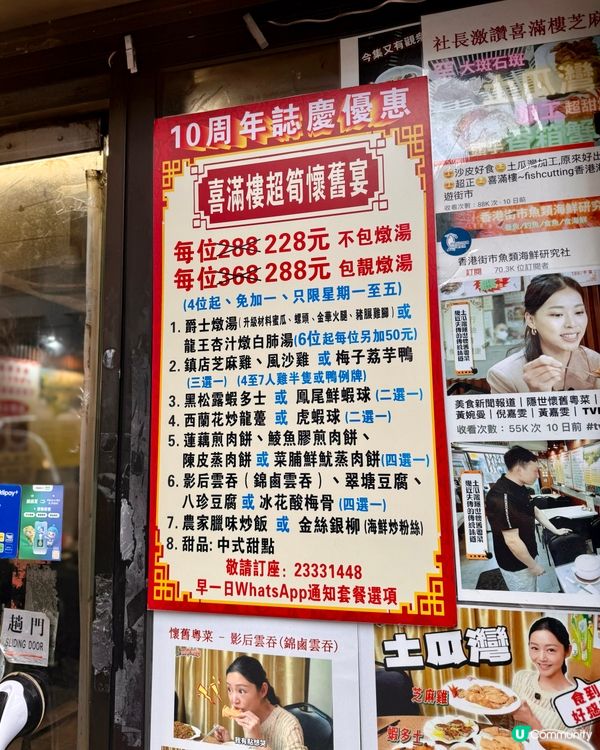 10周年誌慶優惠
喜滿樓超筍懷舊宴
每位288 228元 不包燉湯
每位368 288元 包靚燉湯
(4位起、免加一、只限星期一至五)
1. 爵士燉湯(升級材料蜜瓜、螺頭、金華火腿、豬腱雞腳) 或
龍王杏汁燉白肺湯(6位起每位另加50元)
2. 鎮店芝麻雞、風沙雞 或 梅子荔芋鴨
(三選一) (4至7人雞半隻或鴨例牌)
3. 黑松露蝦多士 或 鳳尾鮮蝦球 (二選一)
4. 西蘭花炒龍躉 或 虎蝦球 (二選一)
5. 蓮藕煎肉餅、鯪魚膠煎肉餅、
陳皮蒸肉餅 或 菜脯鮮魷蒸肉餅(四選一)
6. 影后雲吞（錦鹵雲吞）、翠塘豆腐、
八珍豆腐 或 冰花酸梅骨 (四選一)
7. 農家臘味炒飯 或 金絲銀柳 (海鮮炒粉絲)
8. 甜品: 中式甜點
敬請訂座: 23331448
早一日WhatsApp通知套餐選項
懷舊粵菜 - 影后雲吞(錦鹵雲吞)
我有點想哭
今集又有觀眾
社長激讚喜滿樓芝麻
大斑石斑
土瓜灣
超甜
沙皮好食 土瓜灣加工,原來好出
超正 喜滿樓~fishcutting香港海
遊街市
收看次數：88K 次 · 10 日前
香港街市魚類海鮮研究
香港街市魚類海鮮研究社
訂閱 70.3K 位訂閱者
美食新聞報道｜隱世懷舊粵菜｜
黃婉曼｜倪嘉雯｜黃嘉雯｜TVB
收看次數：55K 次 10 日前 #tv
土瓜灣
芝麻雞
蝦多士
食到
好極
Alipay+
趟門
SLIDING DOOR
U Community